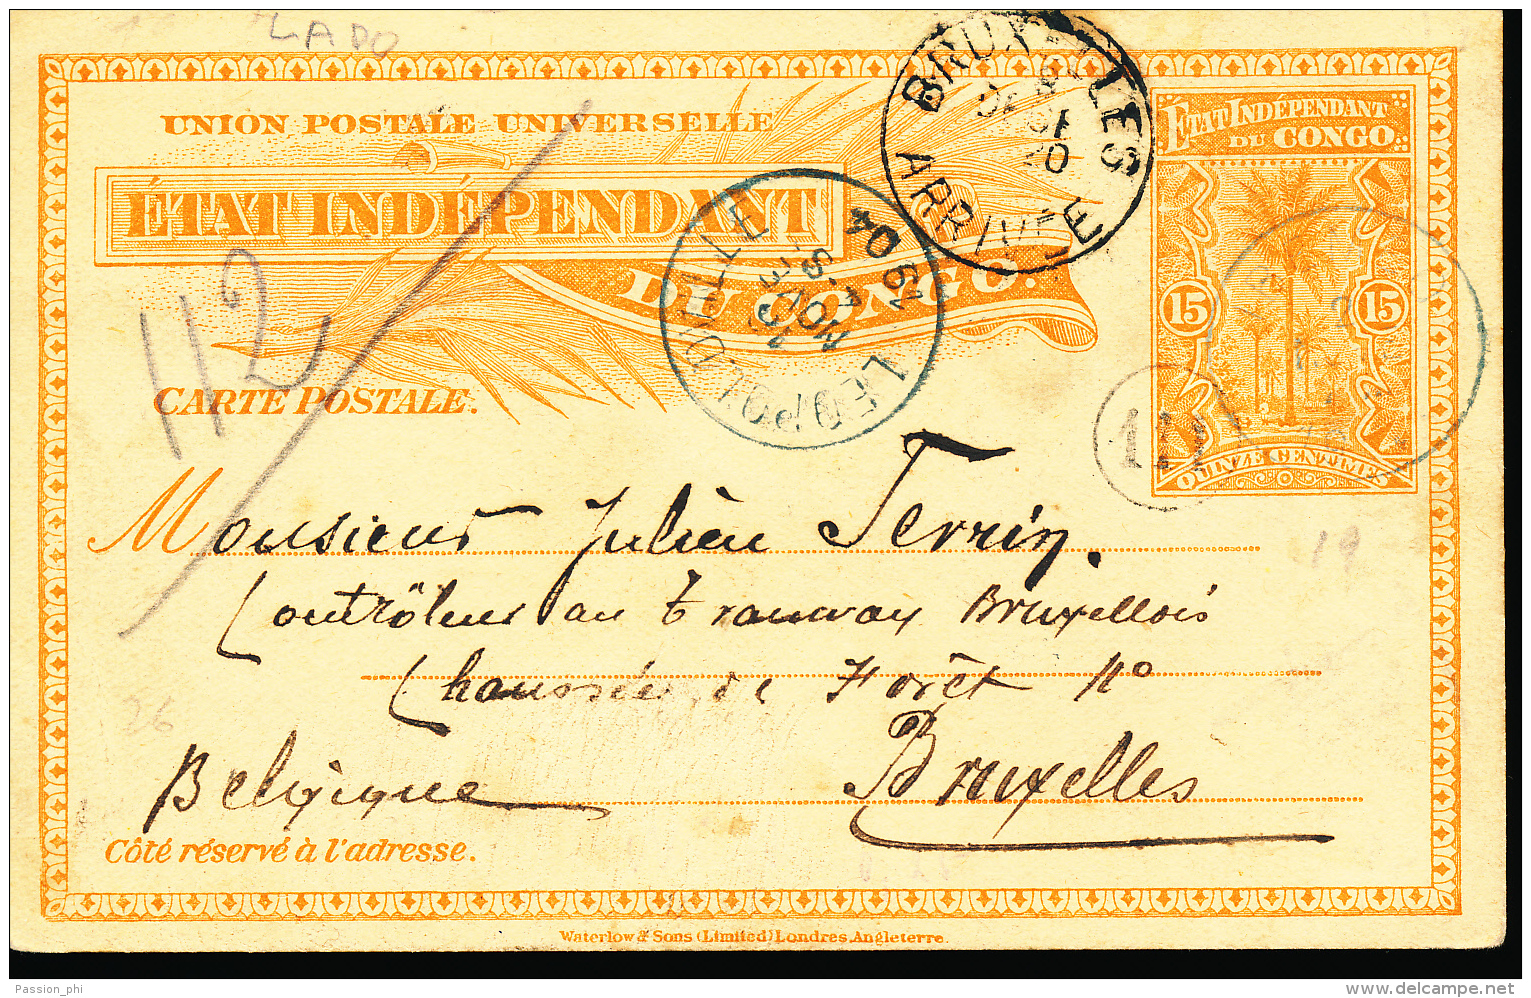 LADO
UNION POSTALE UNIVERSELLE
ÉTAT INDÉPENDANT
DU CONGO.
CARTE POSTALE.
112
BRUXELLES
ARRIVÉE
LÉOPOLDVILLE
1904
ÉTAT INDÉPENDANT
DU CONGO
15 15
QUINZE CENTIMES
Monsieur Julien Terrin.
Contrôleur au tramway Bruxellois
Chaussée de Forêt No
Belgique Bruxelles
19
26
Côté réservé à l'adresse.
Waterlow & Sons (Limited) Londres, Angleterre.
Passion_phi
delcampe.net